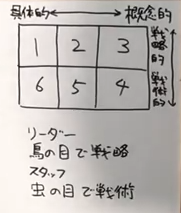 具体的 ↔ 概念的
1 2 3 戦略的
6 5 4 戦術的
リーダー
鳥の目で戦略
スタッフ
虫の目で戦術